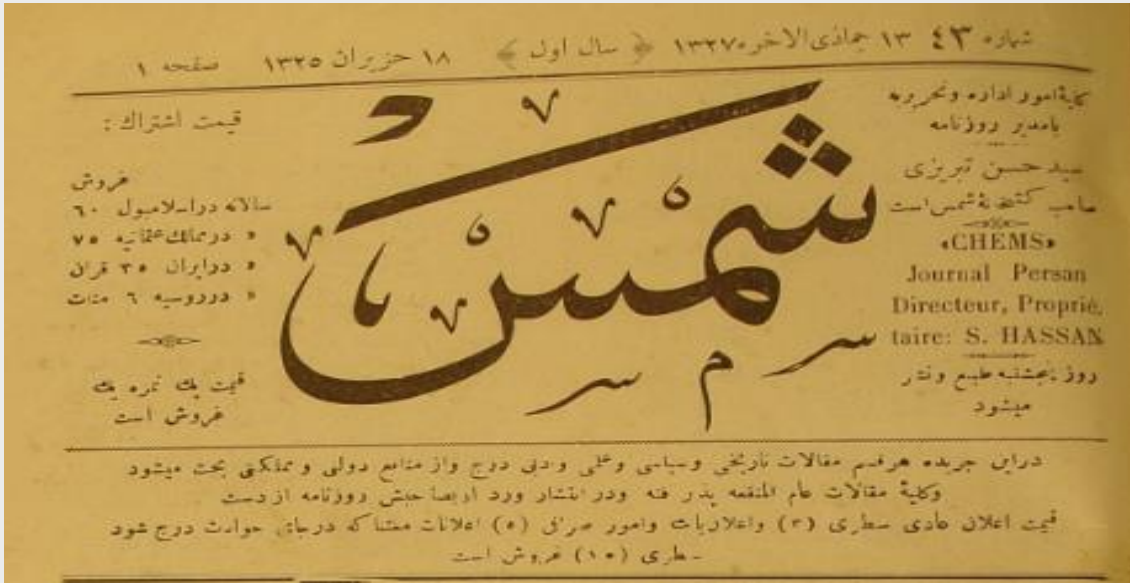 شماره ٤٣ ١٣ جماذى‌الاخره ١٣٢٧ ﴿ سال اول ﴾ ١٨ حزيران ١٣٢٥ صفحه ١
كليهٔ امور اداره وتحريريه
بامدير روزنامه
سيد حسن تبريزى
صاحب كتبخانهٔ شمس است
«CHEMS»
Journal Persan
Directeur, Proprié,
taire: S. HASSAN
روز پنجشنبه طبع ونشر
ميشود
شمس
قيمت اشتراك :
غروش
سالانه دراسلامبول ٦٠
« درممالك عثمانيه ٧٥
« درايران ٣٥ قران
« درروسيه ٦ منات
قيمت يك نمره يك
غروش است
دراين جريده هرقسم مقالات تاريخى وسياسى وعلمى وادبى درج واز منافع دولتى ومملكتى بحث ميشود
وكليهٔ مقالات عام المنفعه پذرفته ودر انتشار ورد از صاحبش روزنامه ازدست
قيمت اعلان عادى سطرى (٣) واعلانات وامور صرافى (٥) اعلانات معتنا كه درجاى حوادث درج شود
سطرى (١٥) غروش است